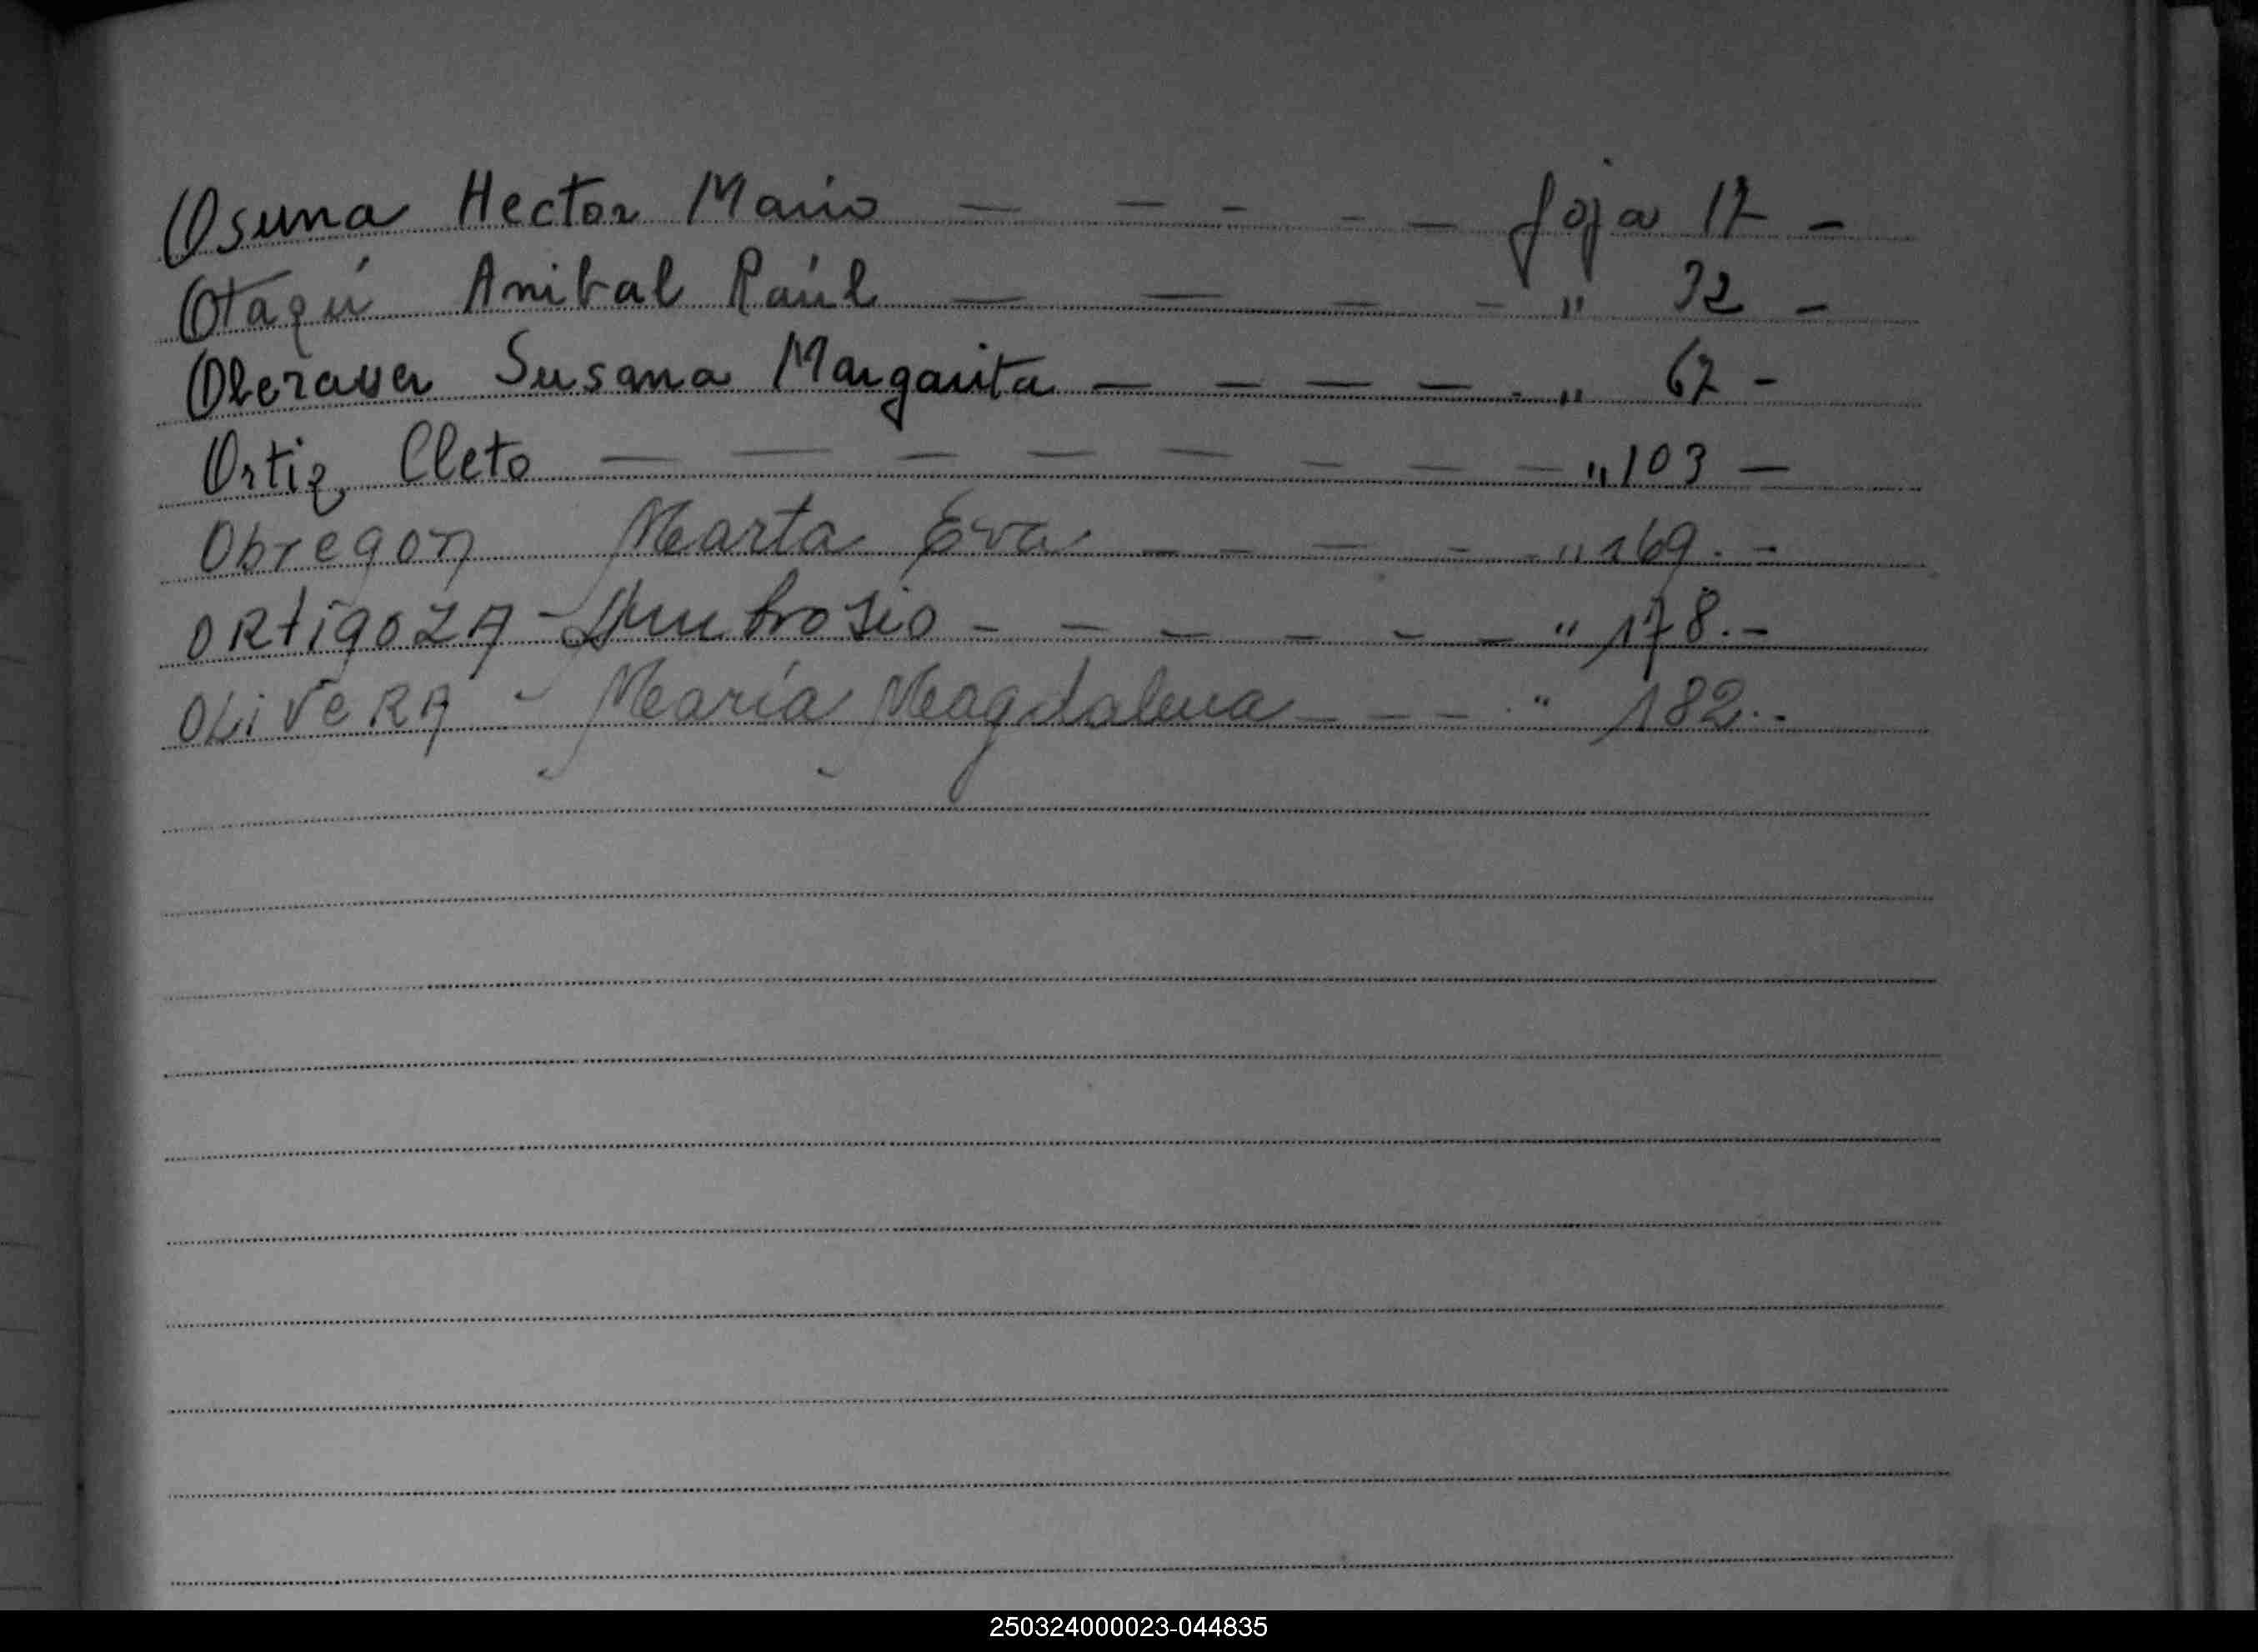 Osuna Hector Mario — — - - — foja 17 -
Otazú Anibal Raúl — — — - " 32 -
Oberauer Susana Margarita — — — — - " 67 -
Ortiz Cleto — — — — — — — — " 103 —
Obregon Marta Eva — — — - - " 169. -
ORtigoZA - Ambrosio - — — — - — " 178. -
OLiveRA - María Magdalena — — — . " 182. -
250324000023-044835